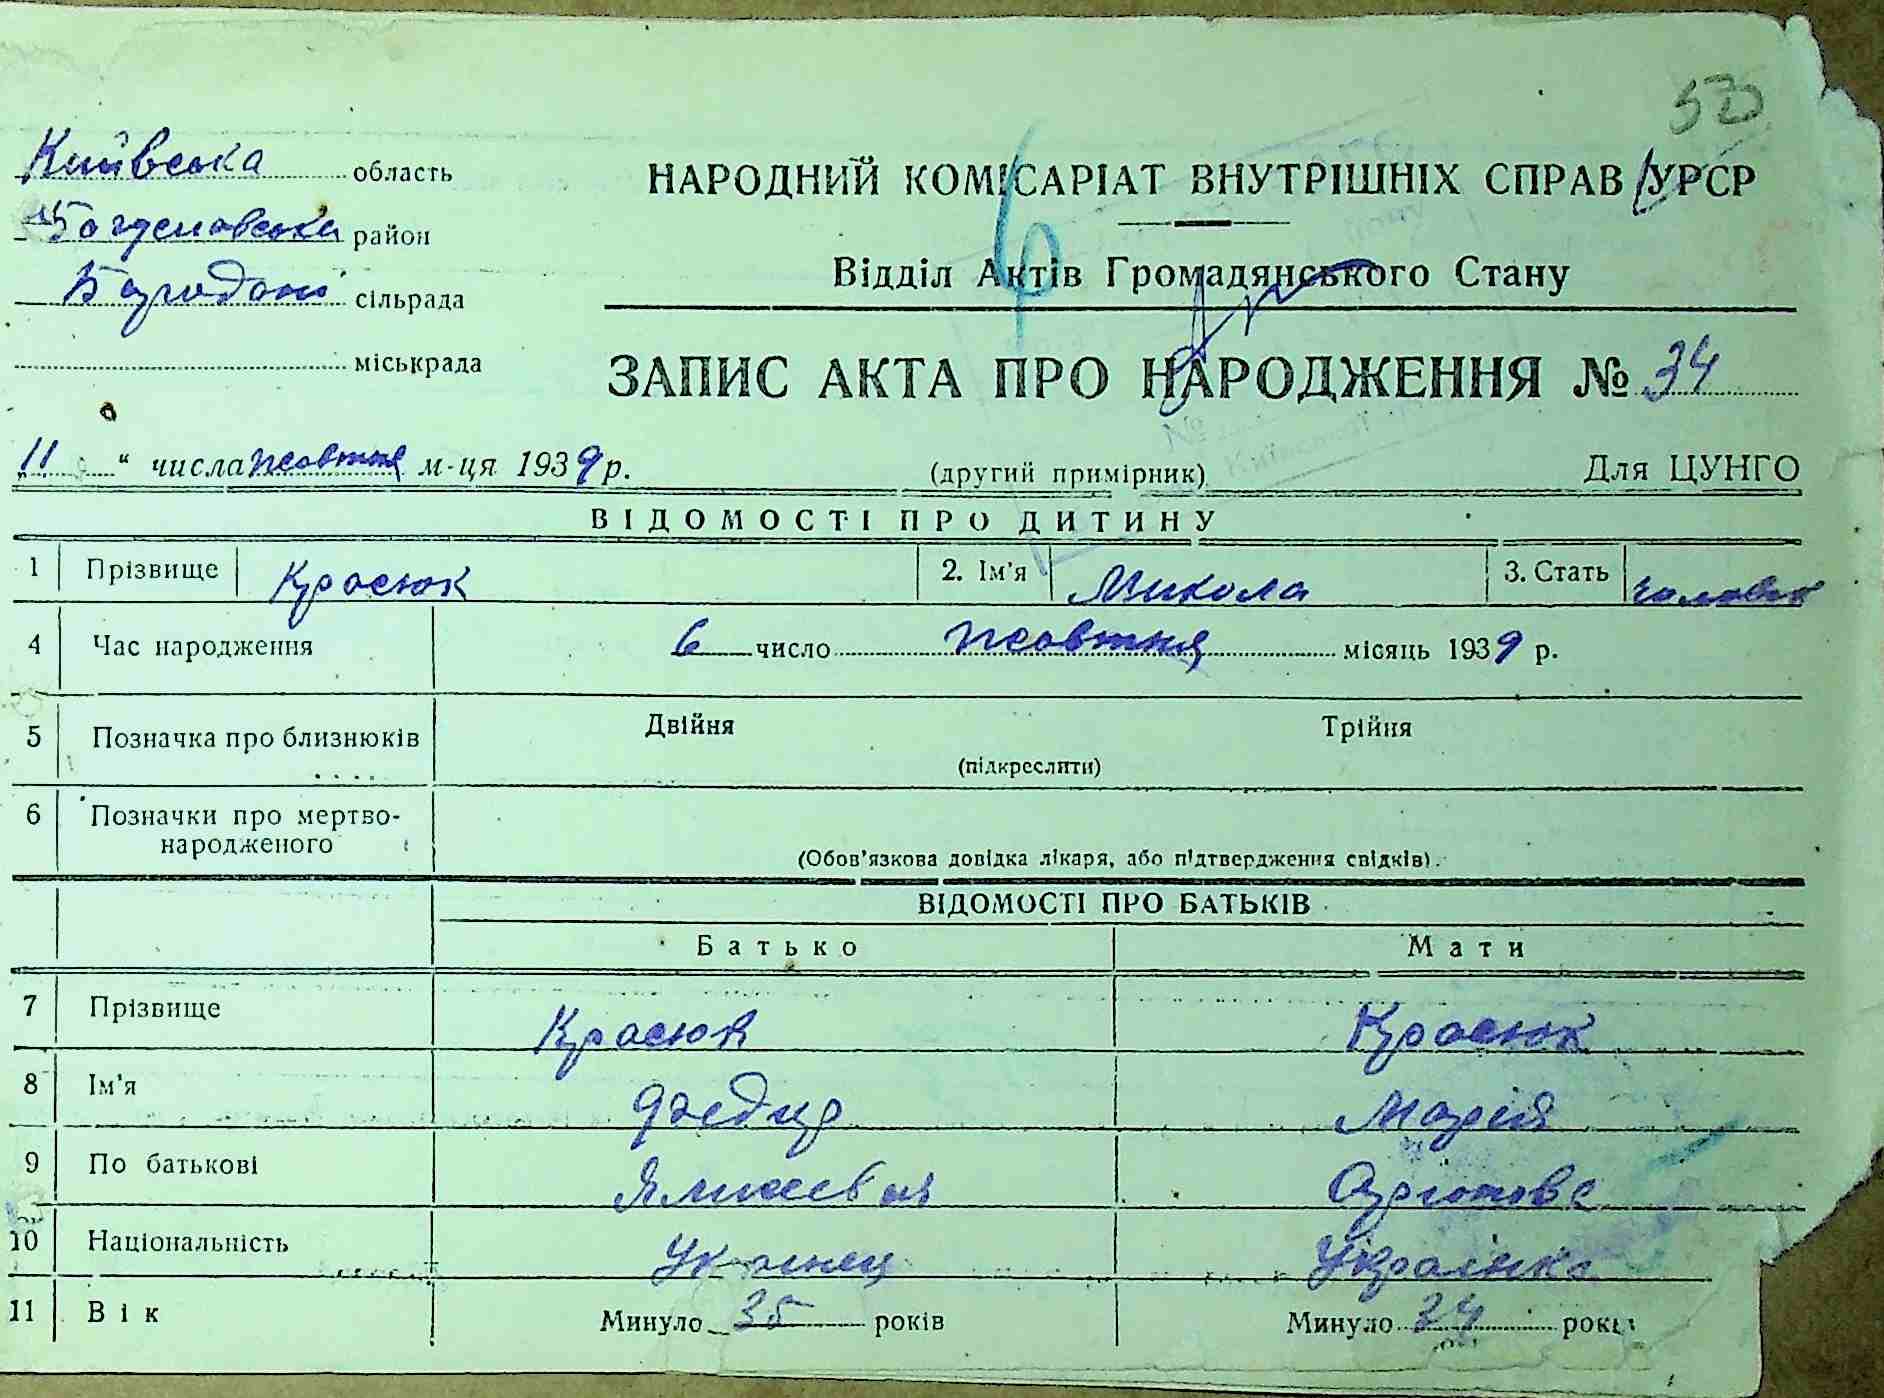 50
Київська область
НАРОДНИЙ КОМІСАРІАТ ВНУТРІШНІХ СПРАВ УРСР
район
6
Відділ Актів Громадянського Стану
сільрада
міськрада
ЗАПИС АКТА ПРО НАРОДЖЕННЯ № 34
11 “ числа жовтня м-ця 1939 р.
(другий примірник)
Для ЦУНГО
ВІДОМОСТІ ПРО ДИТИНУ
1 Прізвище Красюк 2. Ім'я Микола 3. Стать
4 Час народження 6 число жовтня місяць 1939 р.
5 Позначка про близнюків Двійня Трійня
(підкреслити)
6 Позначки про мертво-
народженого
(Обов'язкова довідка лікаря, або підтвердження свідків).
ВІДОМОСТІ ПРО БАТЬКІВ
Батько Мати
7 Прізвище Красюк Красюк
8 Ім'я Марія
9 По батькові
10 Національність Українка
11 Вік Минуло 35 років Минуло 34 років